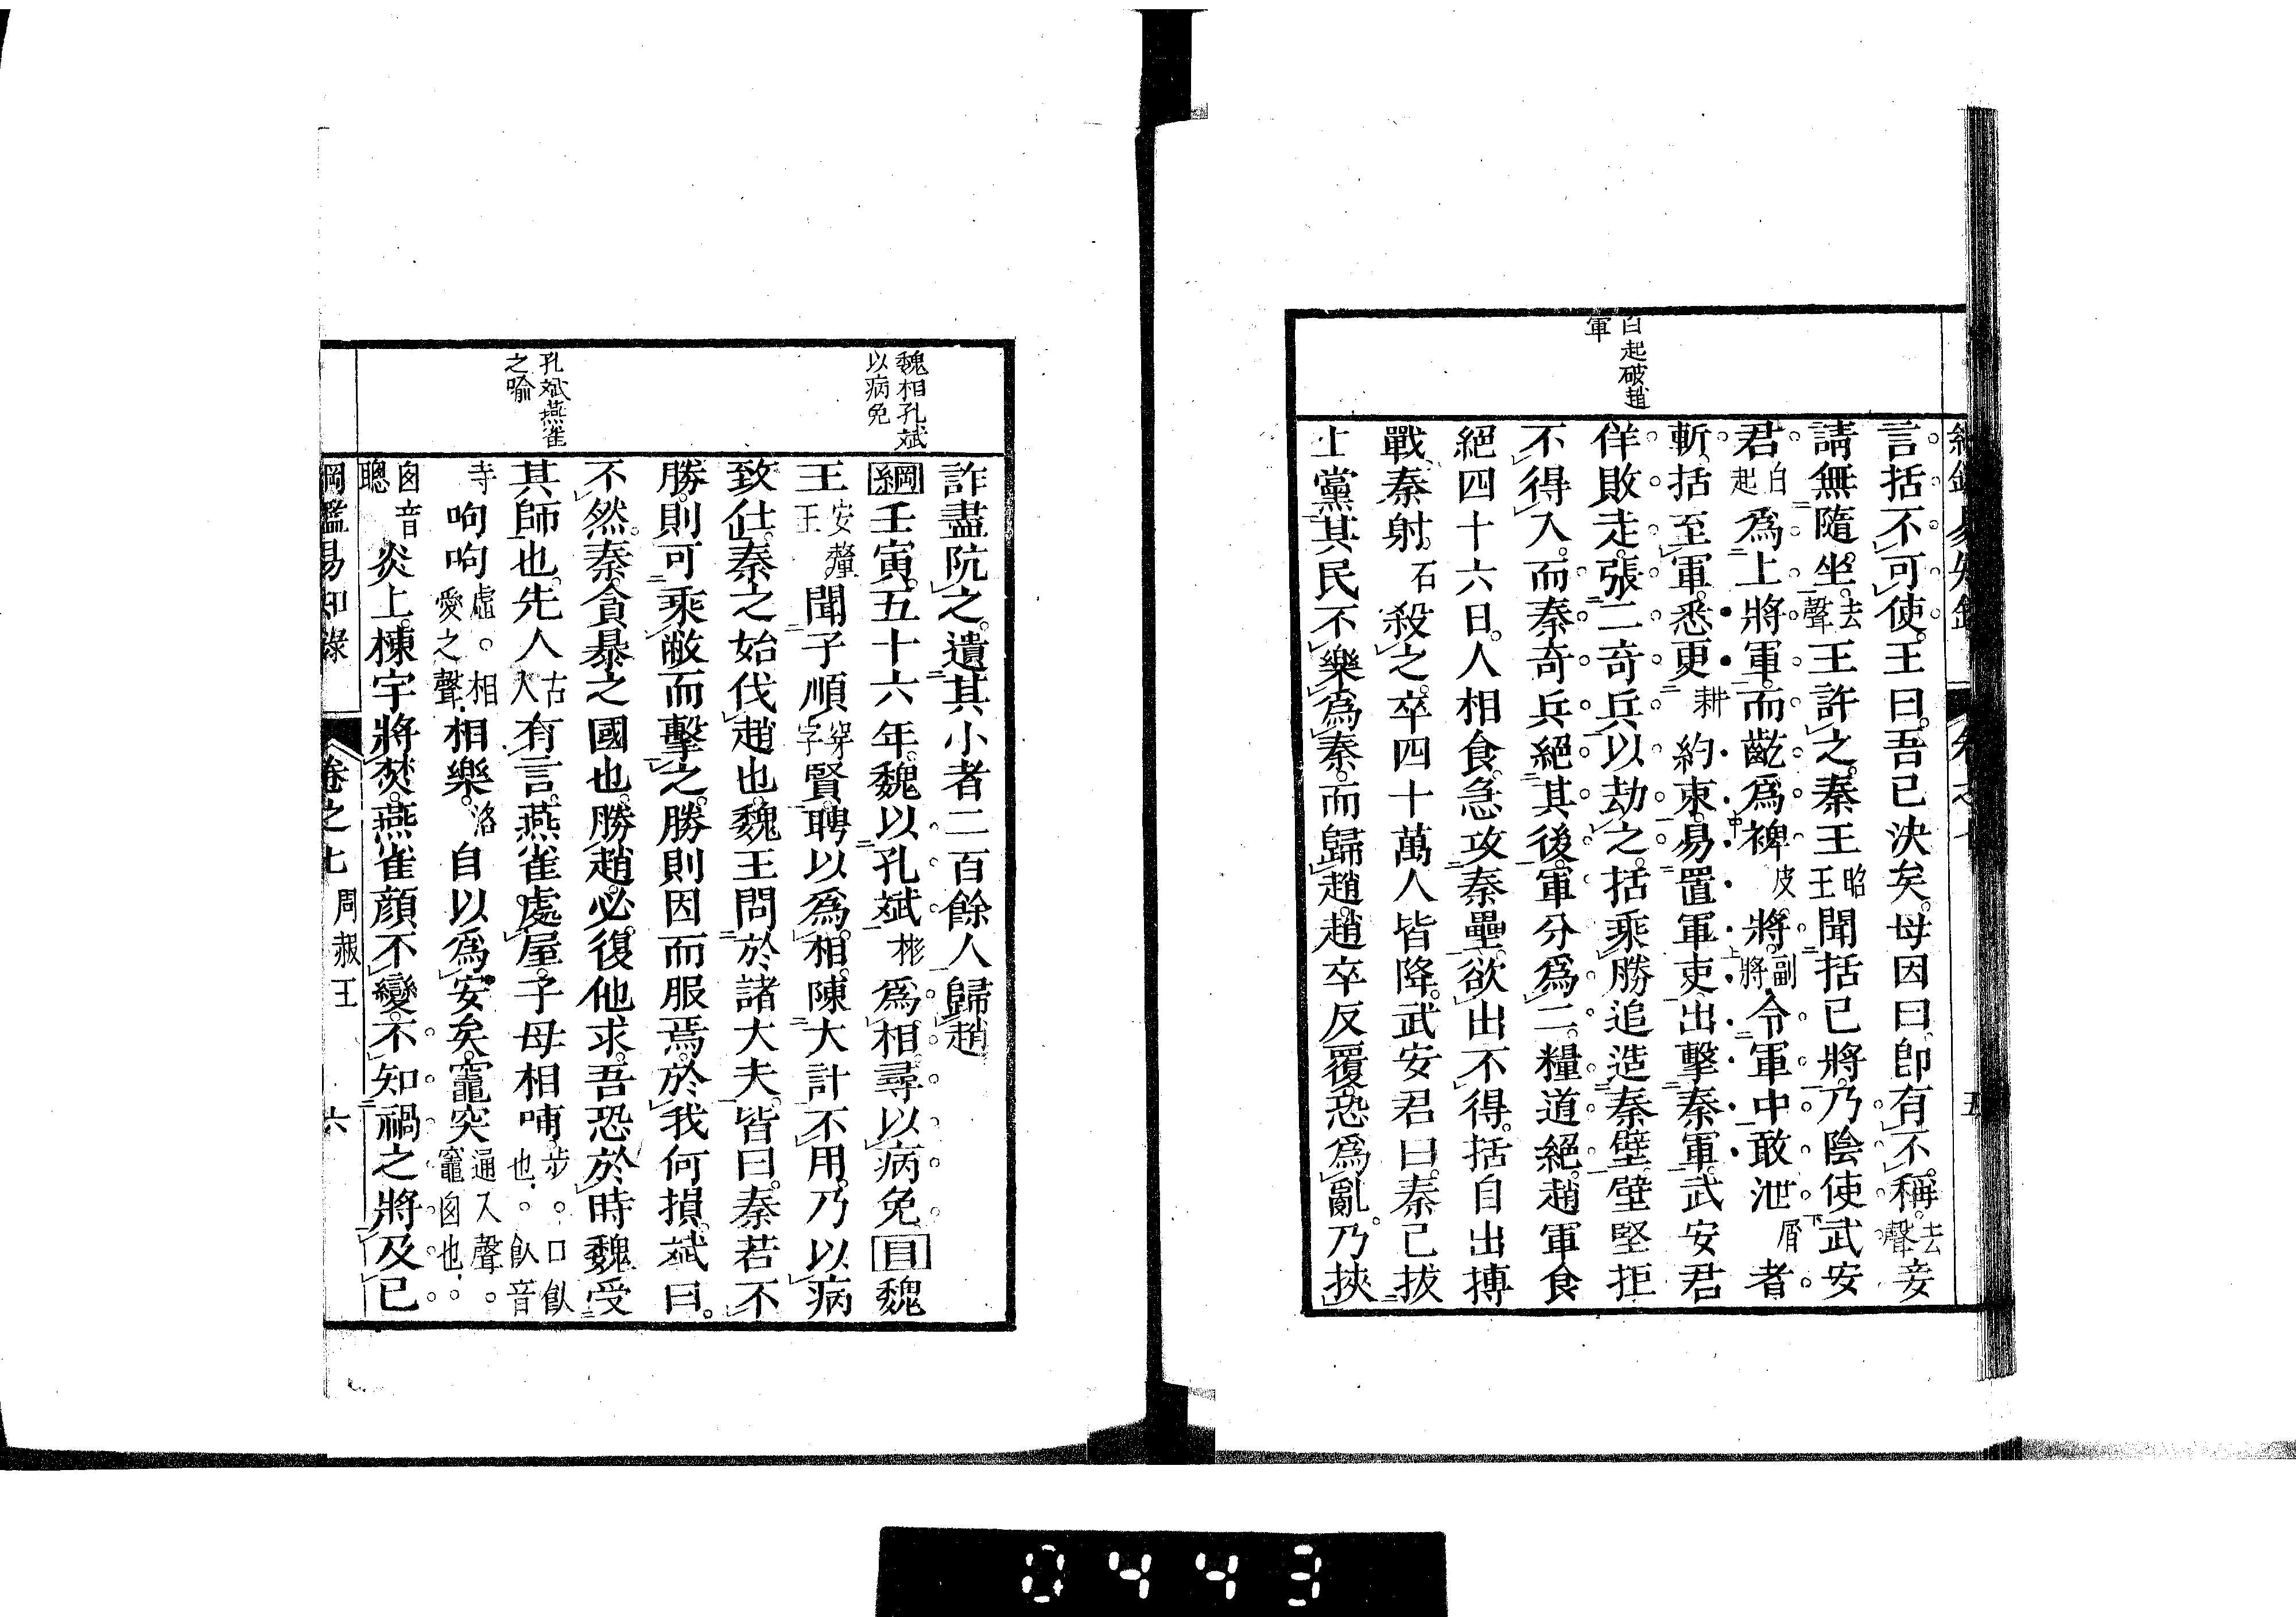 言括不可使王曰吾已決矣母因曰卽有不稱去聲妾
請無隨坐去聲王許之秦王昭王聞括已將乃陰使武安
君白起爲上將軍而齕爲裨皮將副將令軍中敢泄屑者
斬括至軍悉更耕約束易置軍吏出擊秦軍武安君
佯敗走張二奇兵以劫之括乘勝追造秦壁壁堅拒
不得入而秦奇兵絕其後軍分爲二糧道絕趙軍食
絕四十六日人相食急攻秦壘欲出不得括自出搏
戰秦射石殺之卒四十萬人皆降武安君曰秦已拔
上黨其民不樂爲秦而歸趙趙卒反覆恐爲亂乃挾
白起破趙
軍
詐盡阬之遺其小者二百餘人歸趙
綱壬寅五十六年魏以孔斌彬爲相尋以病免目魏
王安釐王聞子順穿字賢聘以爲相陳大計不用乃以病
致仕秦之始伐趙也魏王問於諸大夫皆曰秦若不
勝則可乘敝而擊之勝則因而服焉於我何損斌曰
不然秦貪暴之國也勝趙必復他求吾恐於時魏受
其師也先人古人有言燕雀處屋子母相哺步。口飤也。飤音
寺呴呴虛。相愛之聲相樂洛自以爲安矣竈突通入聲。竈囪也。
囪音聰炎上棟宇將焚燕雀顏不變不知禍之將及已
魏相孔斌
以病免
孔斌燕雀
之喻
綱鑑易知錄 卷之七 周赧王 六
0443